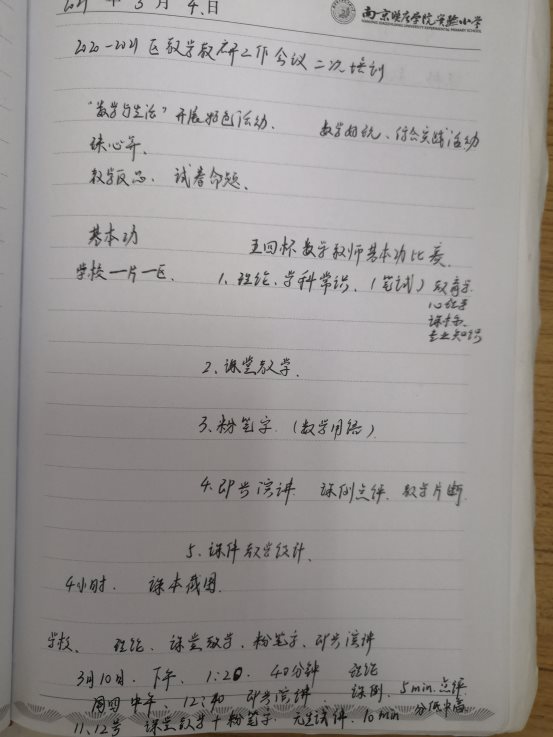 2021年3月4日
南京晓庄学院实验小学
2020-2021区数学教研工作会议二次培训
"数学与生活"开展好包活动、 数学好玩、综合实践活动
珠心算、
教学反思、试卷命题、
基本功 王回杯数学教师基本功比赛
学校—片—区 1、理论、学科常识、(笔试) 教育学
心理学
课标
专业知识
2、课堂教学、
3、粉笔字、(数学用语)
4、即兴演讲 课例点评、教学片断
5、课件教学设计、
4小时、 课本截图
学校、 理论、课堂教学、粉笔字、即兴演讲
3月10日、下午、1:20、40分钟 理论
周四中午、12:40 即兴演讲 课例、5min点评
11、12号 课堂教学+粉笔字、无生试讲、10min 分低中高